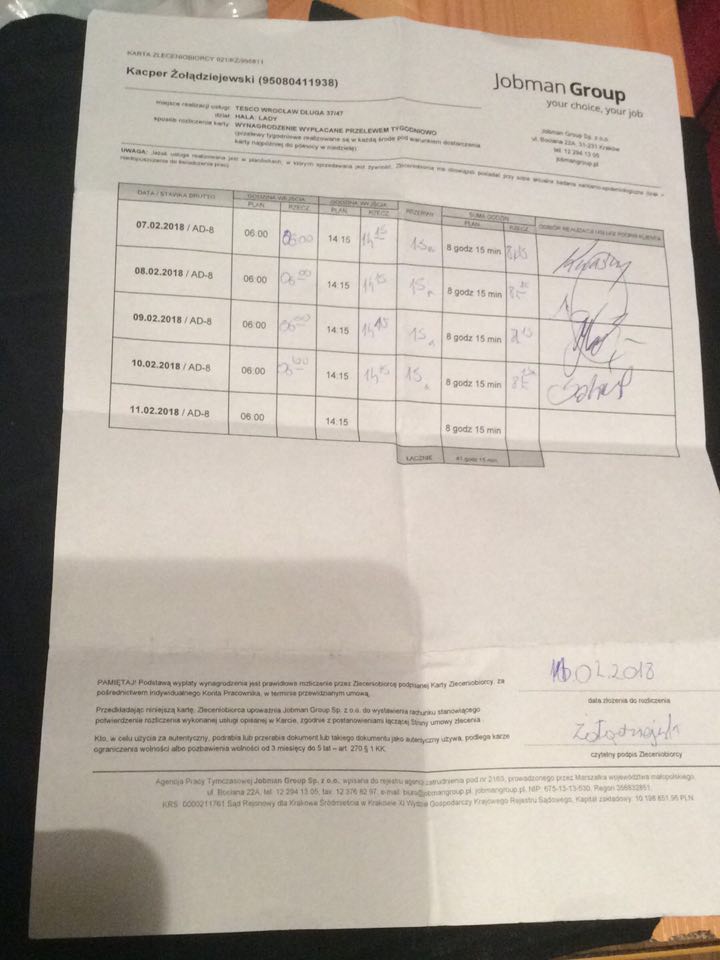 KARTA ZLECENIOBIORCY 021/KZ/995811
Kacper Żołądziejewski (95080411938)
Jobman Group
your choice, your job
miejsce realizacji usługi: TESCO WROCŁAW DŁUGA 37/47
dział: HALA: LADY
sposób rozliczenia karty: WYNAGRODZENIE WYPŁACANE PRZELEWEM TYGODNIOWO
(przelewy tygodniowe realizowane są w każdą środę pod warunkiem dostarczenia
karty najpóźniej do północy w niedzielę)
Jobman Group Sp. z o.o.
ul. Bociana 22A, 31-231 Kraków
tel. 12 294 13 05
jobmangroup.pl
UWAGA: Jeżeli usługa realizowana jest w placówkach, w którym sprzedawana jest żywność, Zleceniobiorca ma obowiązek posiadać przy sobie aktualne badania sanitarno-epidemiologiczne (brak =
niedopuszczenie do świadczenia pracy)
DATA / STAWKA BRUTTO GODZINA WEJŚCIA GODZINA WYJŚCIA PRZERWA SUMA GODZIN ODBIÓR REALIZACJI USŁUGI PODPIS KLIENTA
PLAN RZECZ. PLAN RZECZ. PLAN RZECZ.
07.02.2018 / AD-8 06:00 06:00 14:15 14 15 15 8 godz 15 min 8 15
08.02.2018 / AD-8 06:00 06 00 14:15 14 15 15 8 godz 15 min 8 15
09.02.2018 / AD-8 06:00 06 00 14:15 14 15 15 8 godz 15 min 8 15
10.02.2018 / AD-8 06:00 06 00 14:15 14 15 15 8 godz 15 min 8 15
11.02.2018 / AD-8 06:00 14:15 8 godz 15 min
ŁĄCZNIE 41 godz 15 min
PAMIĘTAJ! Podstawą wypłaty wynagrodzenia jest prawidłowe rozliczenie przez Zleceniobiorcę podpisanej Karty Zleceniobiorcy, za
pośrednictwem indywidualnego Konta Pracownika, w terminie przewidzianym umową.
Przedkładając niniejszą kartę, Zleceniobiorca upoważnia Jobman Group Sp. z o.o. do wystawienia rachunku stanowiącego
potwierdzenie rozliczenia wykonanej usługi opisanej w Karcie, zgodnie z postanowieniami łączącej Strony umowy zlecenia
Kto, w celu użycia za autentyczny, podrabia lub przerabia dokument lub takiego dokumentu jako autentyczny używa, podlega karze
ograniczenia wolności albo pozbawienia wolności od 3 miesięcy do 5 lat – art. 270 § 1 KK.
02.2018
data złożenia do rozliczenia
czytelny podpis Zleceniobiorcy
Agencja Pracy Tymczasowej Jobman Group Sp. z o.o., wpisana do rejestru agencji zatrudnienia pod nr 2163, prowadzonego przez Marszałka województwa małopolskiego.
ul. Bociana 22A, tel. 12 294 13 05, fax: 12 376 82 97, e-mail: biuro@jobmangroup.pl, jobmangroup.pl, NIP: 675-13-13-530, Regon 356832851,
KRS: 0000211761 Sąd Rejonowy dla Krakowa Śródmieścia w Krakowie XI Wydział Gospodarczy Krajowego Rejestru Sądowego, Kapitał zakładowy: 10 198 651,95 PLN